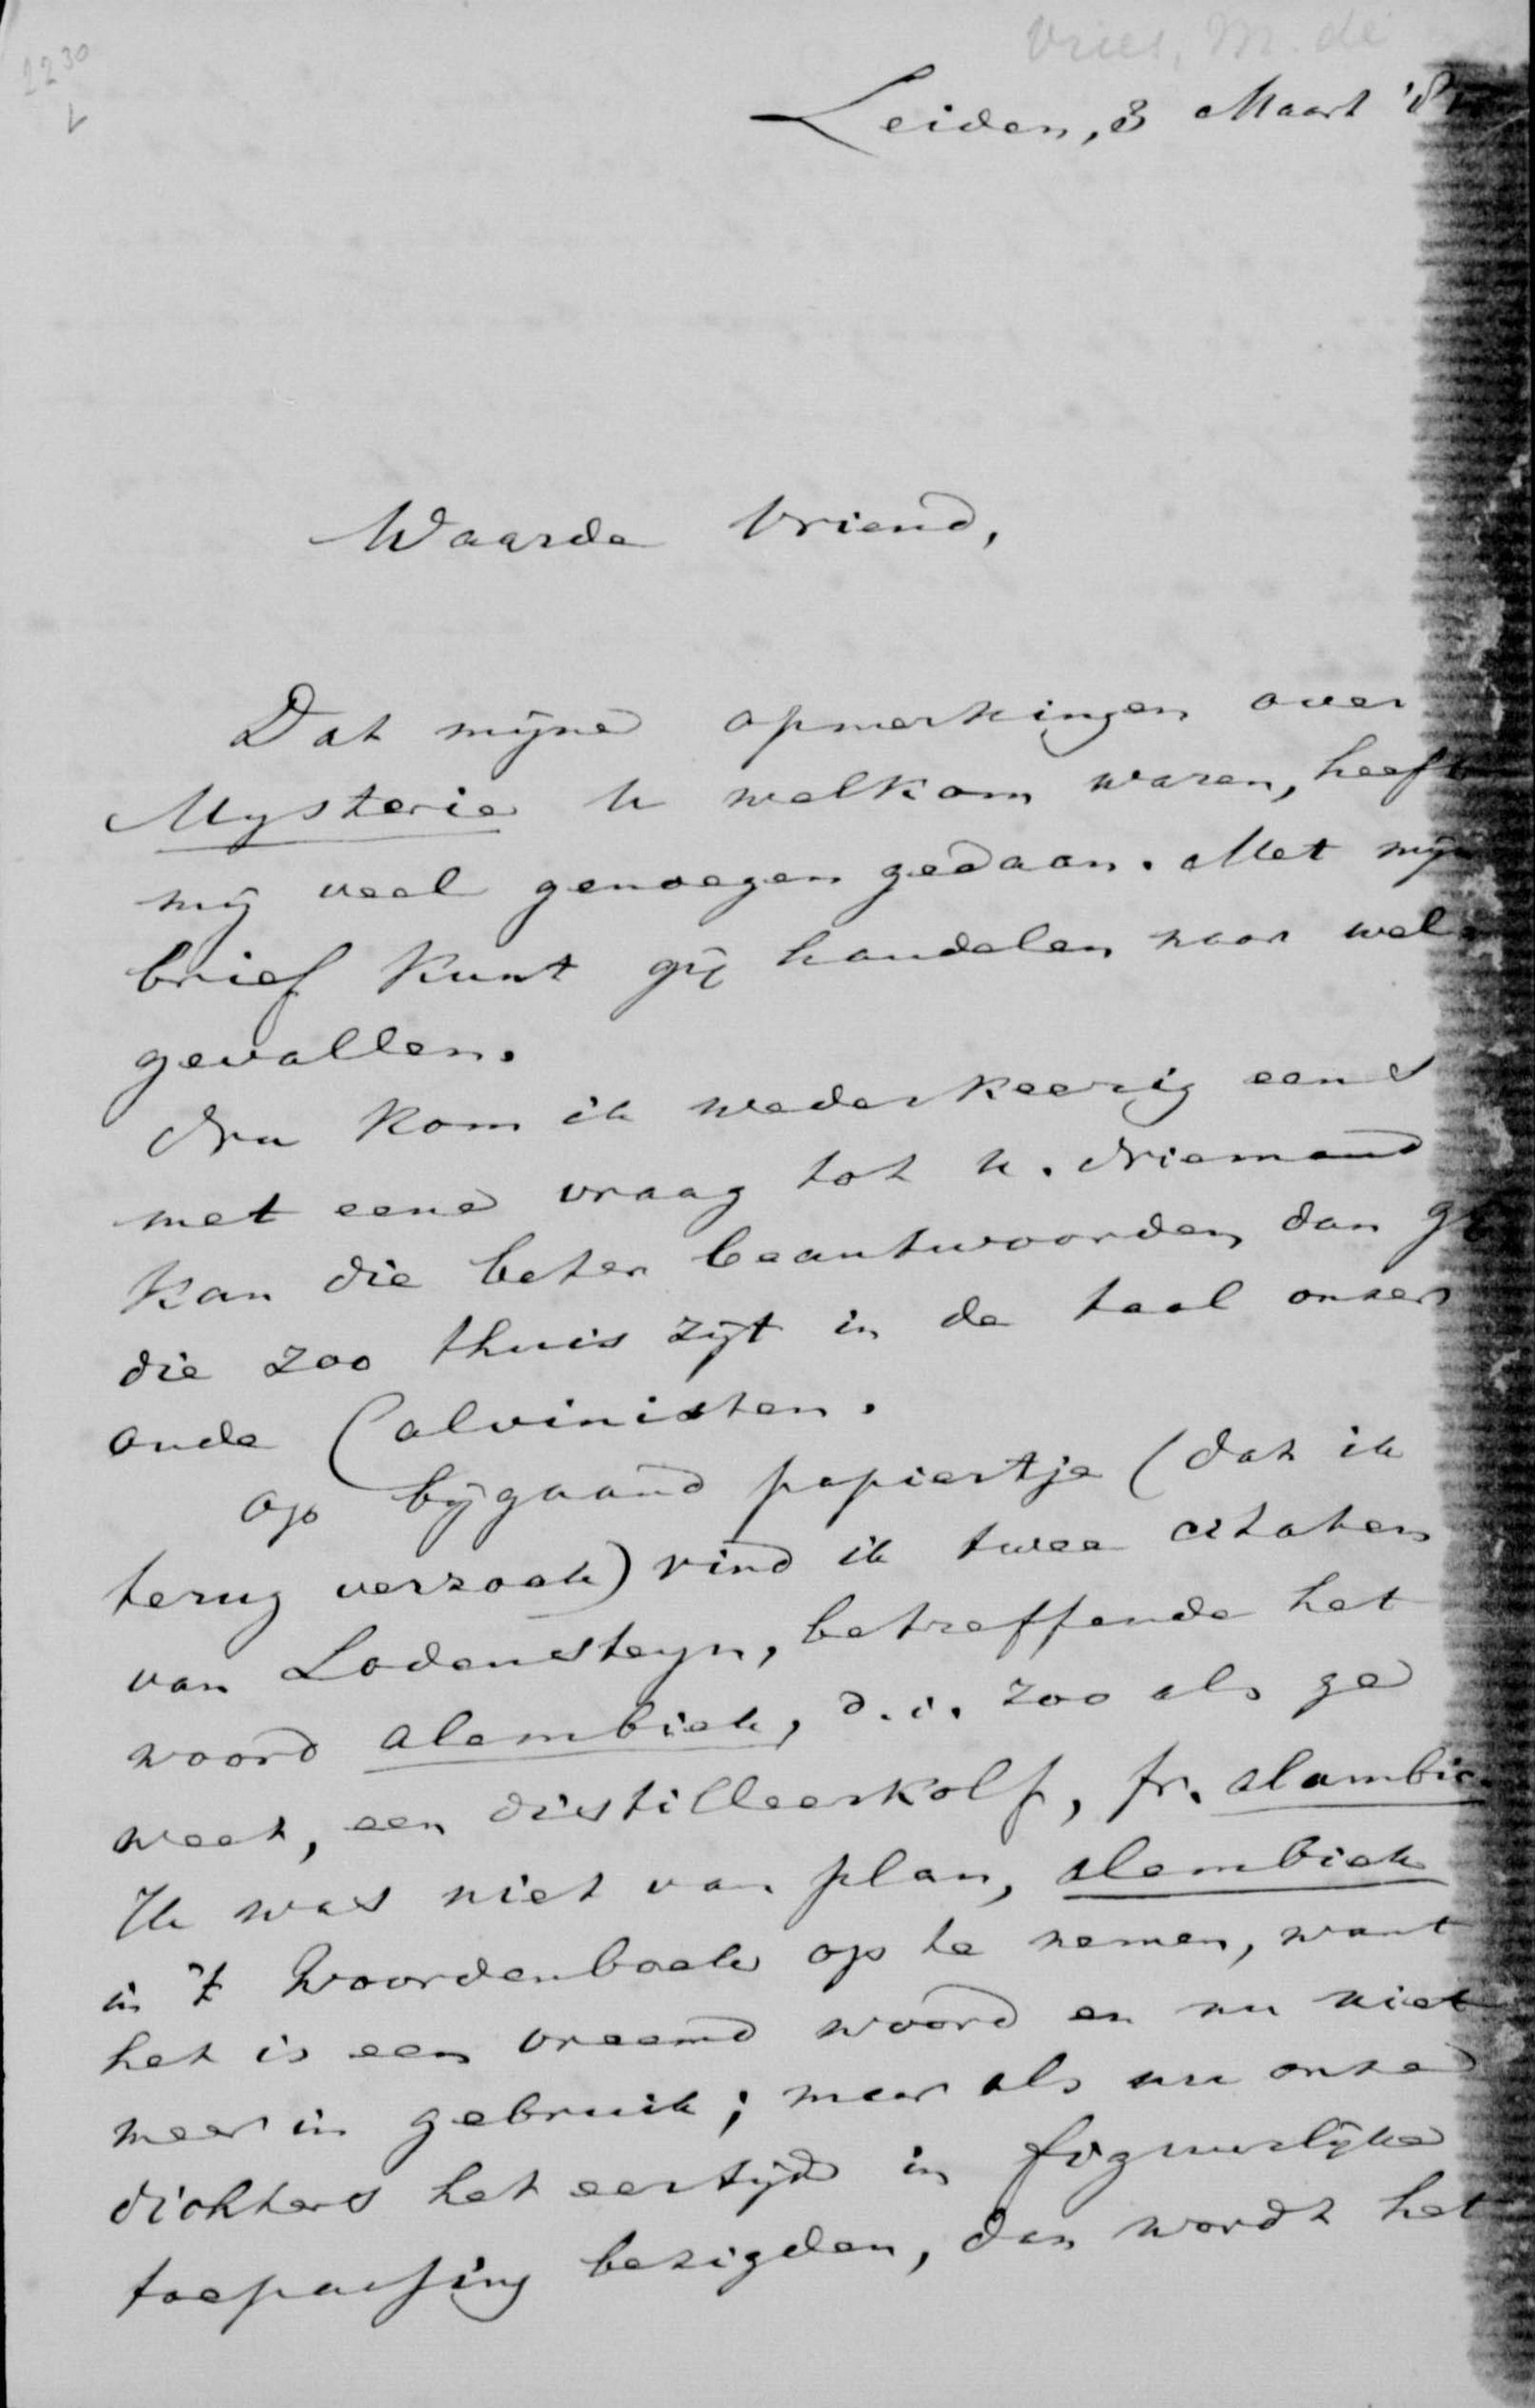 2230
Vries, M. de
Leiden, 3 Maart '8
Waarde Vriend,
Dat mijne opmerkingen over
Mysterie U welkom waren, heeft
mij veel genoegen gedaan. Met mijn
brief kunt gij handelen naar wel-
gevallen.
Nu kom ik wederkeerig eens
met eene vraag tot U. Niemand
kan die beter beantwoorden dan gij
die zoo thuis zijt in de taal onzer
oude Calvinisten.
Op bijgaand papiertje (dat ik
terug verzoek) vind ik twee citaten
van Lodensteyn, betreffende het
woord alembiek, d.i. zoo als ge
weet, een distilleerkolf, fr. alambic.
Ik was niet van plan, alembiek
in 't Woordenboek op te nemen, want
het is een vreemd woord en nu niet
meer in gebruik; maar als nu onze
dichters het eertijds in figuurlijke
toepassing bezigden, dan wordt het